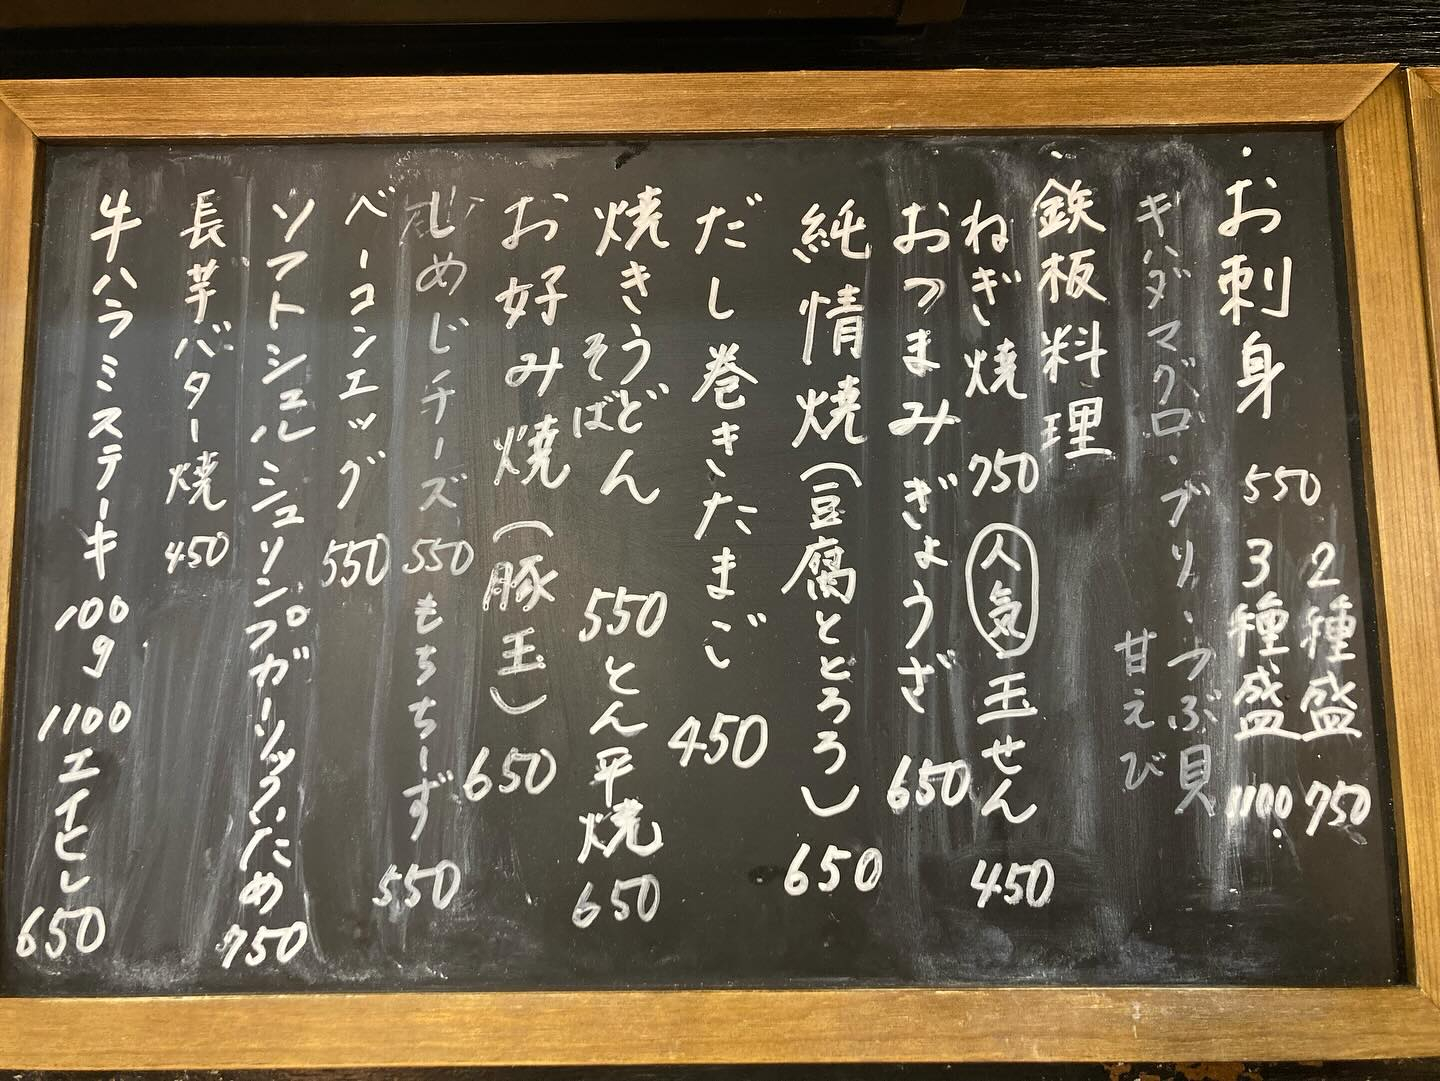 お刺身 550 2種盛 750
3種盛 1100
キハダマグロ・ブリ・つぶ貝
甘えび
鉄板料理
ねぎ焼 750 人気 玉せん 450
おつまみぎょうざ 650
純情焼(豆腐ととろろ) 650
だし巻きたまご 450
焼きうどん
そば 550 とん平焼 650
お好み焼(豚玉) 650
しめじチーズ 550 もちちーず 550
ベーコンエッグ 550
ソフトシェルシュリンプガーリックいため 750
長芋バター焼 450
牛ハラミステーキ 100g 1100 エイヒレ 650